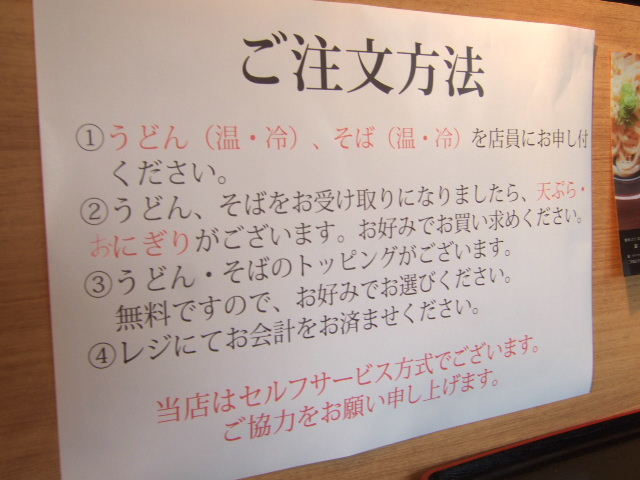 ご注文方法
①うどん（温・冷）、そば（温・冷）を店員にお申し付
ください。
②うどん、そばをお受け取りになりましたら、天ぷら・
おにぎりがございます。お好みでお買い求めください。
③うどん・そばのトッピングがございます。
無料ですので、お好みでお選びください。
④レジにてお会計をお済ませください。
当店はセルフサービス方式でございます。
ご協力をお願い申し上げます。